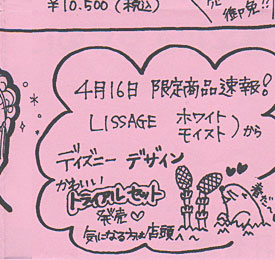 ¥10.500(税込)
御免!!
4月16日 限定商品速報!
LISSAGE ホワイト モイスト)から
ディズニー デザイン
かわいい
トライアルセット
発売♡
気になる方は店頭へ〜